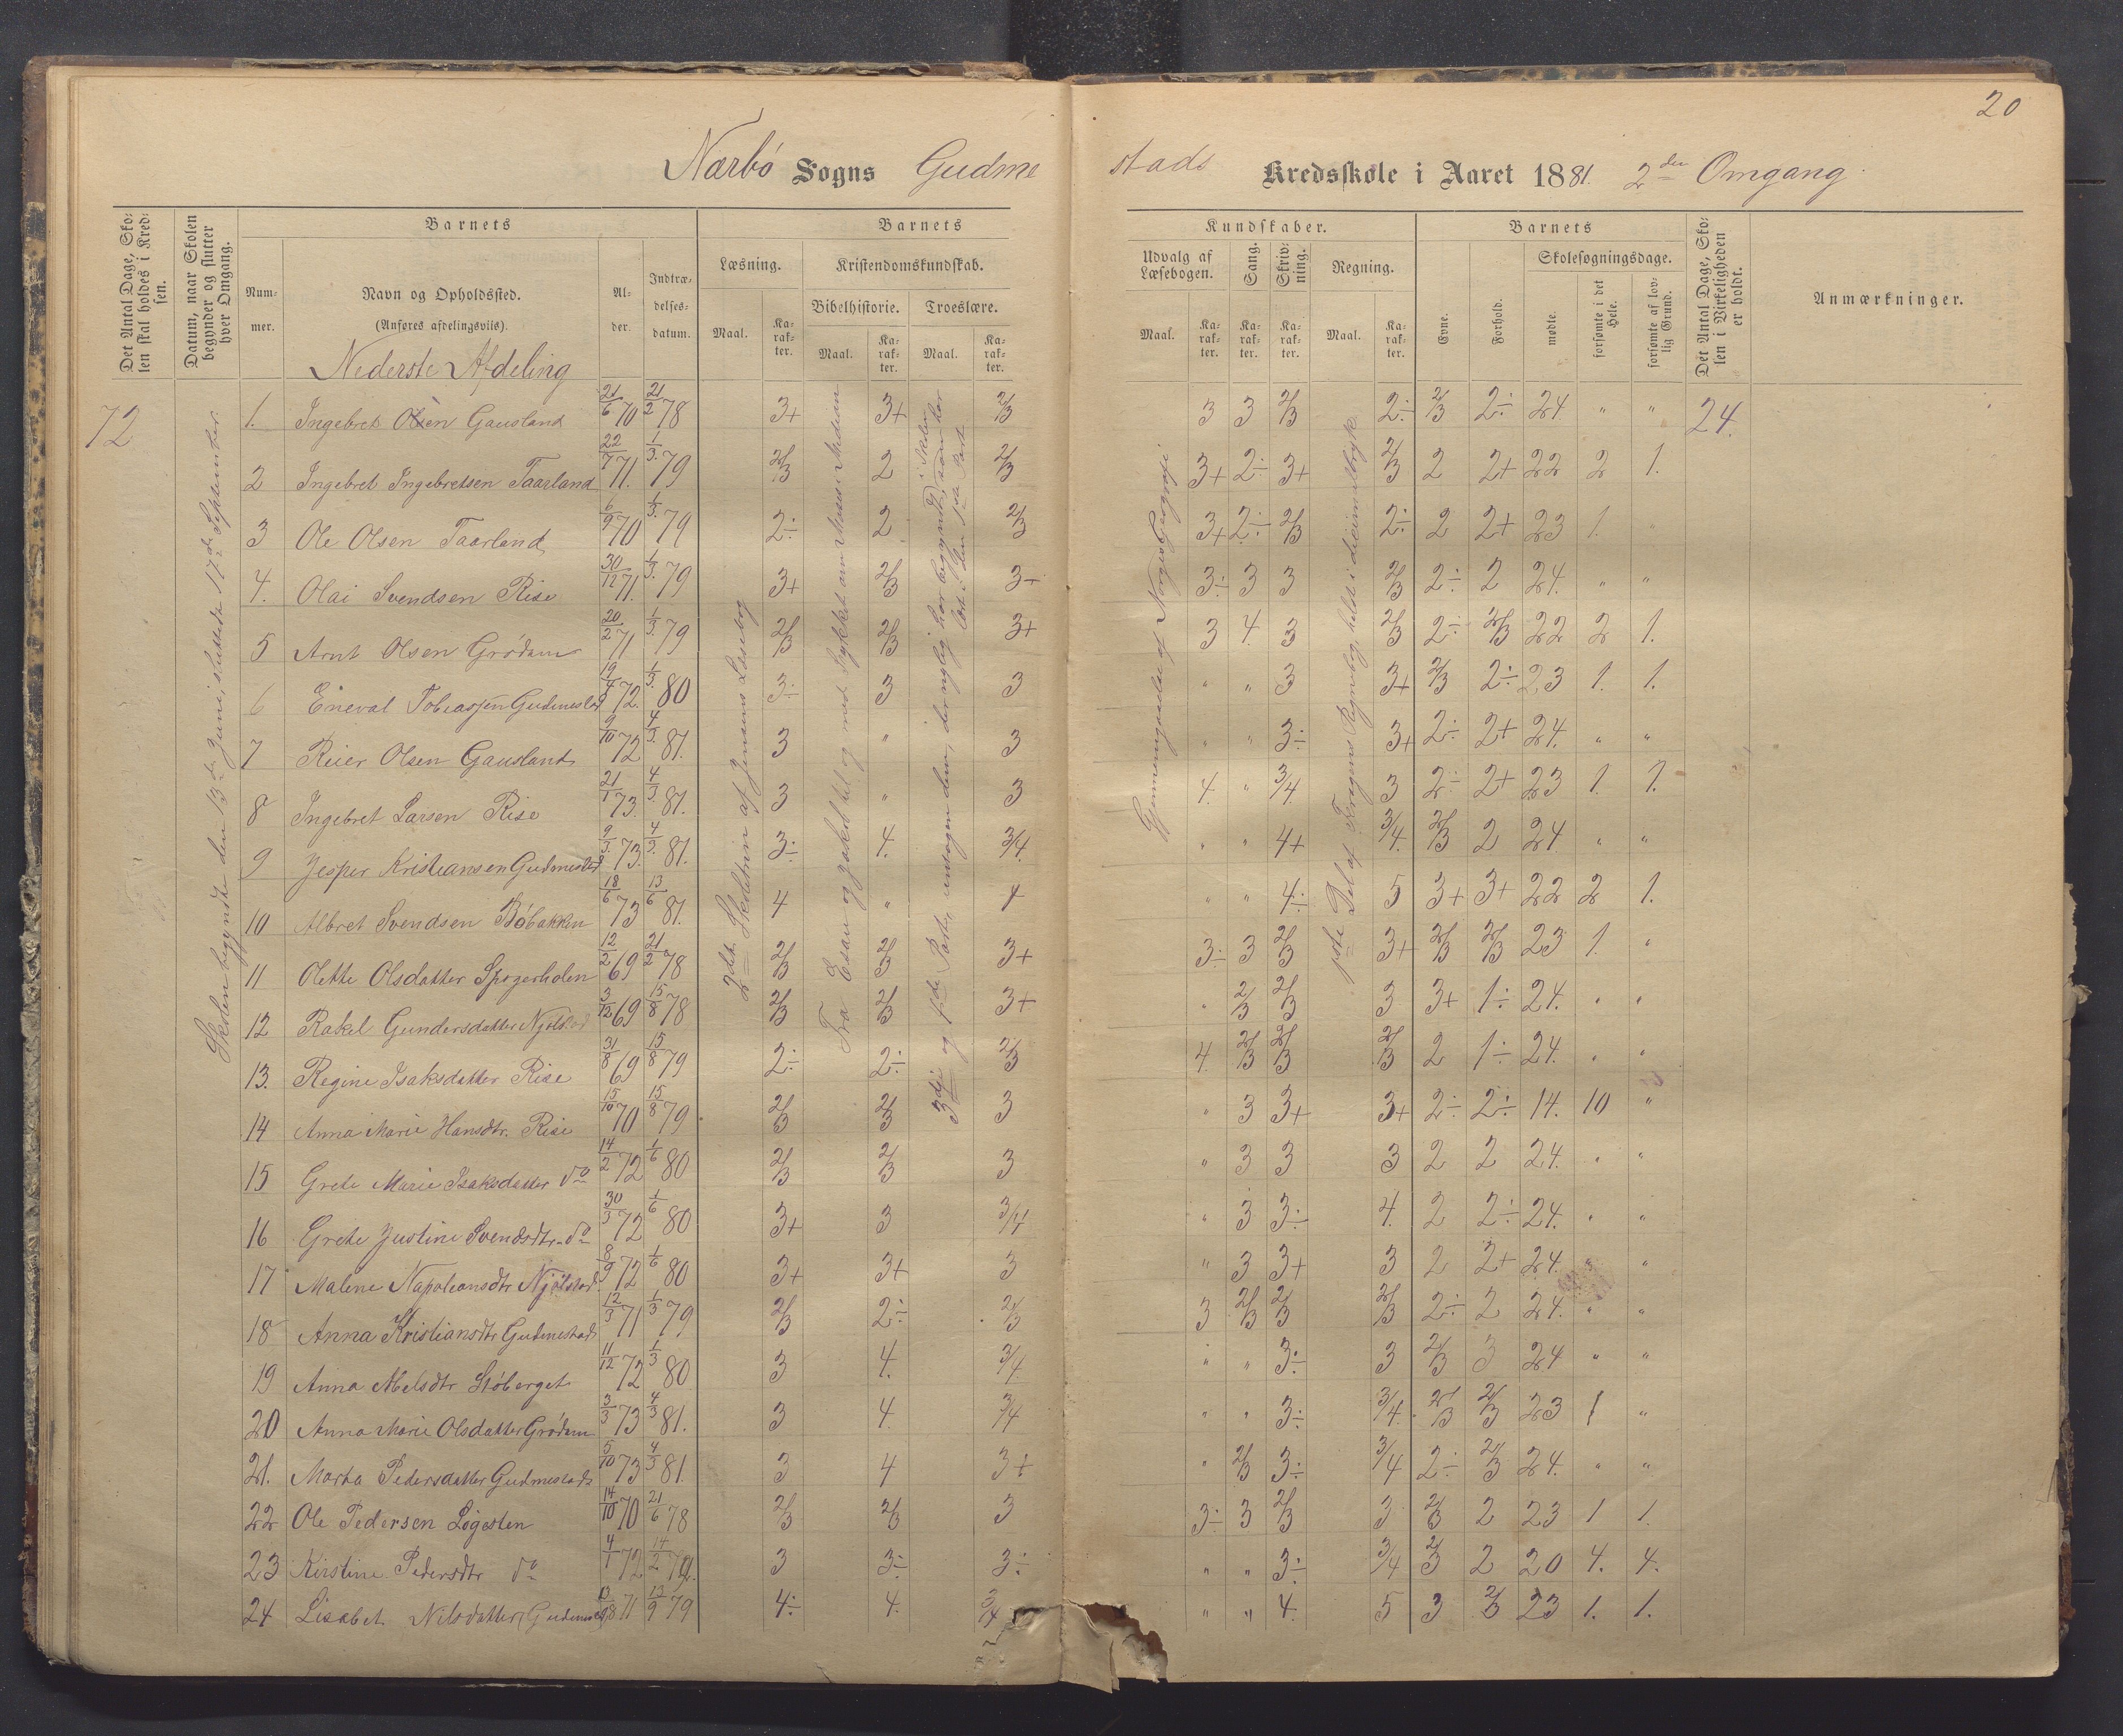 20
Nærbø Sogns Gudmestads Kredsskole i Aaret 1881. 2den Omgang.
Det Antal Dage, Skolen skal holdes i Kredsen.
Datum, naar Skolen begynder og slutter hver Omgang.
Barnets
Nummer.
Navn og Opholdssted.
(Anføres afdelingsviis).
Alder.
Indtrædelsesdatum.
Barnets
Læsning.
Kristendomskundskab.
Bibelhistorie.
Troeslære.
Maal.
Karakter.
Maal.
Karakter.
Maal.
Karakter.
Kundskaber.
Udvalg af Læsebogen.
Sang.
Skrivning.
Regning.
Maal.
Karakter.
Karakter.
Karakter.
Maal.
Karakter.
Barnets
Evne.
Forhold.
Skolesøgningsdage.
mødte.
forsømte i det Hele.
forsømte af lovlig Grund.
Det Antal Dage, Skolen i Virkeligheden er holdt.
Anmærkninger.
Nederste Afdeling
72.
Skolen begyndte den 13de Juni, sluttede 17de September.
2det Skoletrin af Jensens Læsebog
Fra Esau og Jakob til og med Stykket om Moses i Midian
3dje og 4de Part, undtagen dem, der nylig har begyndt i Skolen, som har læst den 1ste Part.
Gjennemgaaelse af Norges Geografi
1ste Del af Regnebog, heldst i decimalbrøk
1. Ingebret Olsen Gausland 21/6 70 21/2 78 3+ 3+ 2/3 3 3 2/3 2÷ 2/3 2÷ 24. " " 24.
2 Ingebret Ingebretsen Taarland 22/7 71. 1/3. 79 2/3 2 2/3 3+ 2÷ 3+ 2/3 2 2+ 22 2 1.
3 Ole Olsen Taarland 6/9 70 1/3. 79 2÷ 2 2/3 3+ 2÷ 2/3 2÷ 2 2+ 23 1. "
4. Olai Svendsen Rise 30/12 71. 1/3. 79 3+ 2/3 3÷ 3÷ 3 3 2/3 2÷ 2 24. " "
5 Arnt Olsen Grødum 20/2 71 1/3 79 2/3 2/3 3+ 3 4. 3 2/3 2÷ 2/3 22 2 1.
6 Eneval Tobiassen Gudmestad 19/4 72. 1/3. 80 3÷ 3 3 " " 3 3+ 2/3 2÷ 23 1. 1.
7 Reier Olsen Gausland 9/10 72 4/3. 81. 3 " 3 " " 3÷ 3+ 2÷ 2+ 24. " "
8 Ingebret Larsen Rise 21/1 73. 4/3 81. 3 " 3 4. " 3/4. 3 2÷ 2+ 23 1. 1.
9 Jesper Kristiansen Gudmestad 9/3 73. 4/3. 81. 3÷ 4. 3/4. " " 4+ 3/4. 2/3 2 24 " "
10 Albret Svendsen Bøbakken 18/6 73 13/6 81. 4 " 4 " " 4÷ 5 3+ 3+ 22 2 1.
11 Olette Olsdatter 12/2 69 21/2 78 2/3 2/3 3+ 3÷ 3 2/3 3+ 2/3 2/3 23 1. "
12 Rakel Gundersdatter Njølstad 3/12 69 15/8 78 2/3 2/3 3+ " 2/3 2/3 3 3+ 1÷ 24. " "
13. Regine Isaksdatter Rise 31/8 69 15/8 79 2÷ 2÷ 2/3 4. 2/3 2/3 2/3 2 1÷ 24. " "
14 Anna Marie Hansdtr. Rise 15/10 70 15/8 79 2/3 2/3 3 " 3 3+ 3+ 2÷ 2÷ 14. 10 "
15 Grete Marie Isaksdatter do 14/2 72 1/6 80 2/3 2/3 3 " 3 3 3 2 2 24. " "
16 Grete Justine Svendsdtr. do 30/3 72 1/6 80 3+ 3 3/4 " 3 3÷ 4. 2 2÷ 24. " "
17 Malene Napoleonsdtr Njølstad 8/9 72 1/6 80 3+ 3+ 3 " 3 3+ 3 2 2+ 24. " "
18 Anna Kristiansdtr Gudmestad 12/3 71 1/3 79 2/3 2÷ 2/3 3 2/3 2/3 2/3 2÷ 2 24. " "
19 Anna Abelsdtr 11/12 72 1/3 80 3 4. 3/4 " " 3÷ 3 2/3 3 24 " "
20 Anna Marie Olsdatter Grødum 3/3 73 4/3 81. 3 4. 3/4 " " 3÷ 3/4. 2/3 2/3 23 1 "
21. Marta Pedersdatter Gudmestad 5/10 73 4/3 81. 3 4 3+ " 2/3 3÷ 3/4 2÷ 2/3 24. " "
22 Ole Pedersen 14/10 70 21/6 78 2/3 2/3 3 3÷ 3 2/3 3 2/3 2 23 1 1.
23 Kirstine Pedersdtr do 4/1 72 14/2 79. 3 3÷ 3÷ " " 3÷ 3/4 2/3 2 20 4. 4.
24 Lisabet Nilsdatter Gudmes 13/8 71 13/9 79 4÷ 4. 3/4 " " 4. 5 3 2/3 23 1. 1.